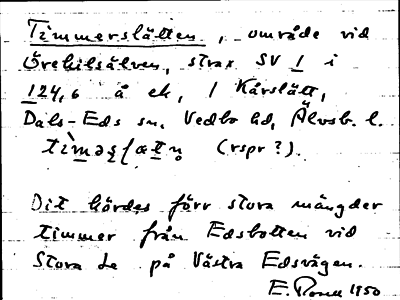 Timmerslätten, område vid
Örekilsälven, strax SV 1 i
124,6 å ek, / Kårslätt,
Dals-Eds sn, Vedbo hd, Älvsb. l.
(rspr?).
Dit kördes förr stora mängder
timmer från Edsbotten vid
Stora Le på Västra Edsvägen.
E. 1950